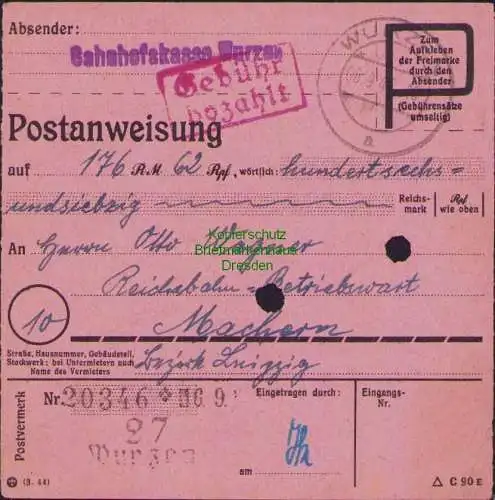 Absender:
Bahnhofskasse Wurzen
Gebühr
bezahlt
WURZEN
a
Zum
Aufkleben
der Freimarke
durch den
Absender
(Gebührensätze
umseitig)
Postanweisung
auf 176 RM 62 Rpf, wörtlich: hundertsechs=
undsiebzig Reichs-
mark Rpf
wie oben
An Herrn Otto Wagner
Kopierschutz
Briefmarkenhaus
Dresden
Reichsbahn=Betriebswart
10 Machern
Bezirk Leipzig
Straße, Hausnummer, Gebäudeteil,
Stockwerk; bei Untermietern auch
Name des Vermieters
Postvermerk
Nr. 20346 * 16.9.
27
Wurzen
Eingetragen durch:
am
Eingangs-
Nr.
(3. 44)
△ C 90 E